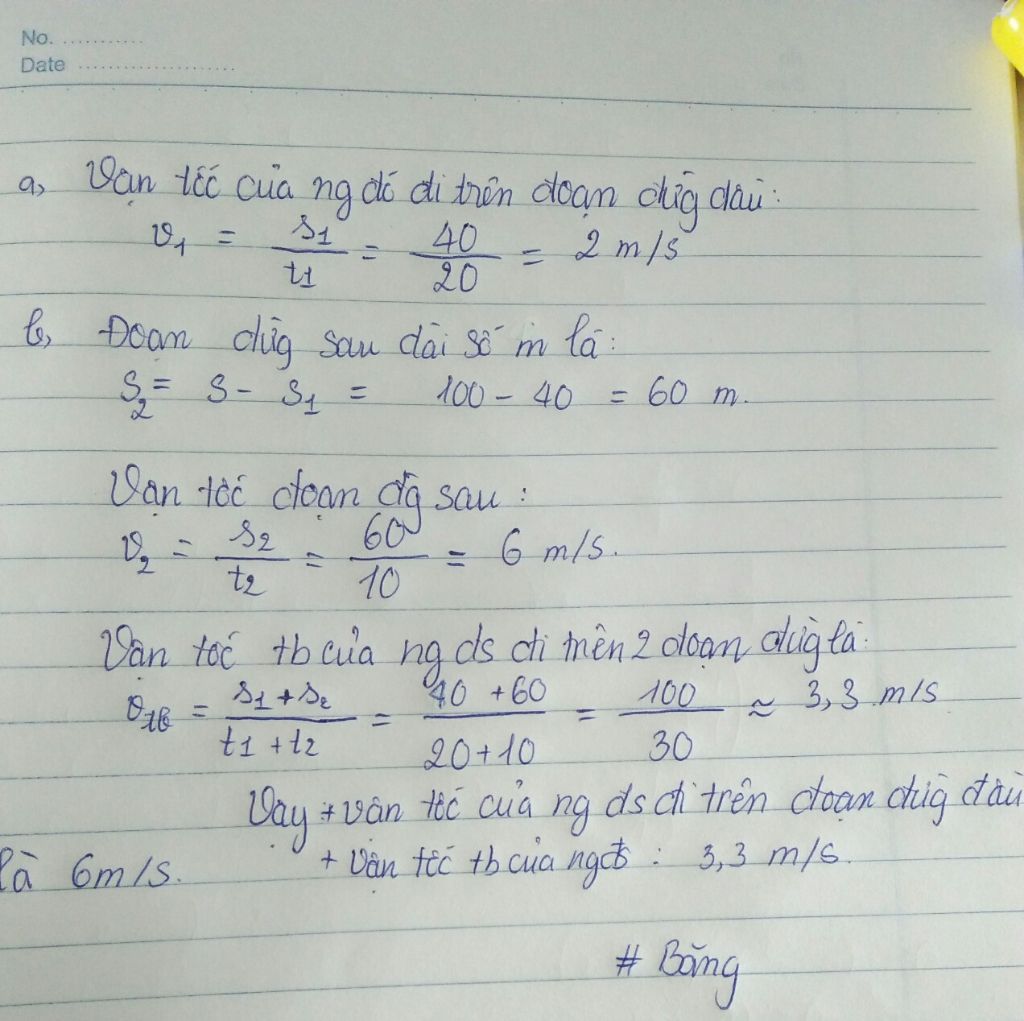 No. ............
Date .....................
a, Vận tốc của ng đó đi trên đoạn đườg đầu:
v₁ = s1/t1 = 40/20 = 2 m/s
b, Đoạn đườg sau dài số m là:
S₂ = S - S₁ = 100 - 40 = 60 m.
Vận tốc đoạn đg sau:
v₂ = s2/t2 = 60/10 = 6 m/s.
Vận tốc tb của ng đs đi trên 2 đoạn đườg là:
v_tb = (s1 + s2)/(t1 + t2) = (40 + 60)/(20 + 10) = 100/30 ≈ 3,3 m/s
Vậy + vận tốc của ng đs đi trên đoạn đườg đầu
là 6m/s. + Vận tốc tb của ng đs : 3,3 m/s.
# Băng